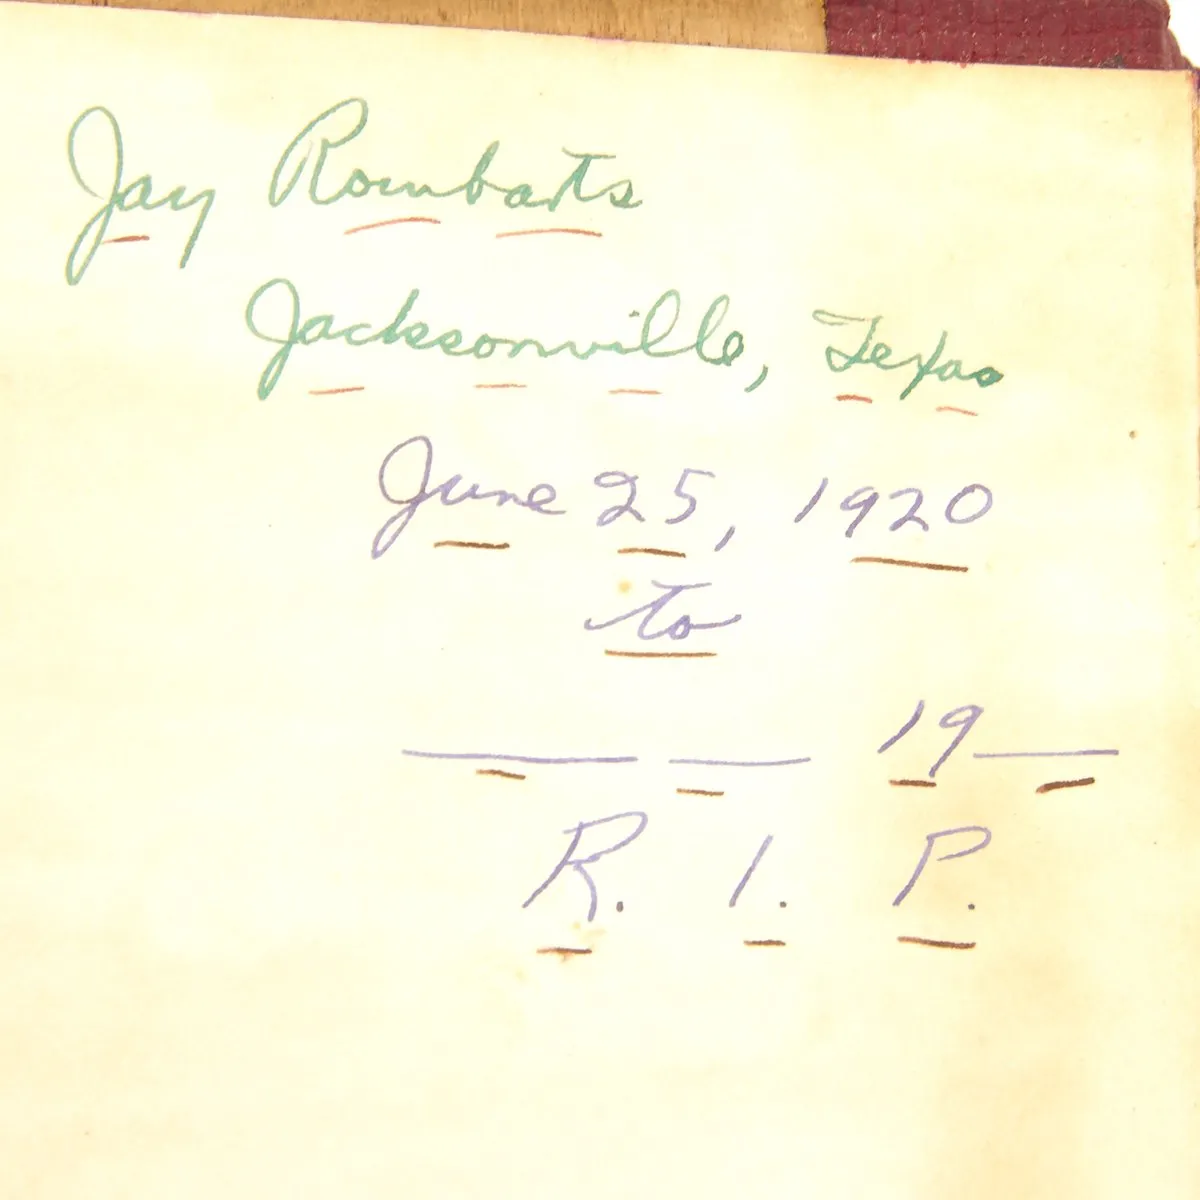 Jay Rombarts
Jacksonville, Texas
June 25, 1920
to
____ ___ 19___
R. I. P.